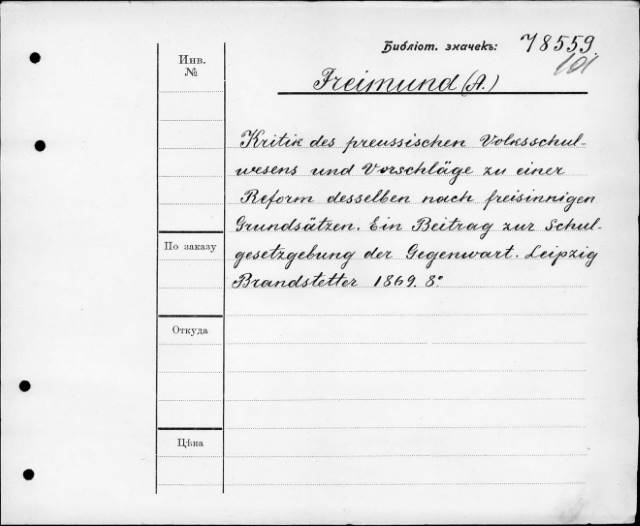 Библіот. значекъ: 78559
101
Инв.
№
Freimund (A.)
Kritik des preussischen Volksschul-
wesens und Vorschläge zu einer
Reform desselben nach freisinnigen
Grundsätzen. Ein Beitrag zur Schul-
gesetzgebung der Gegenwart. Leipzig
Brandstetter 1869. 8°
По заказу
Откуда
Цѣна